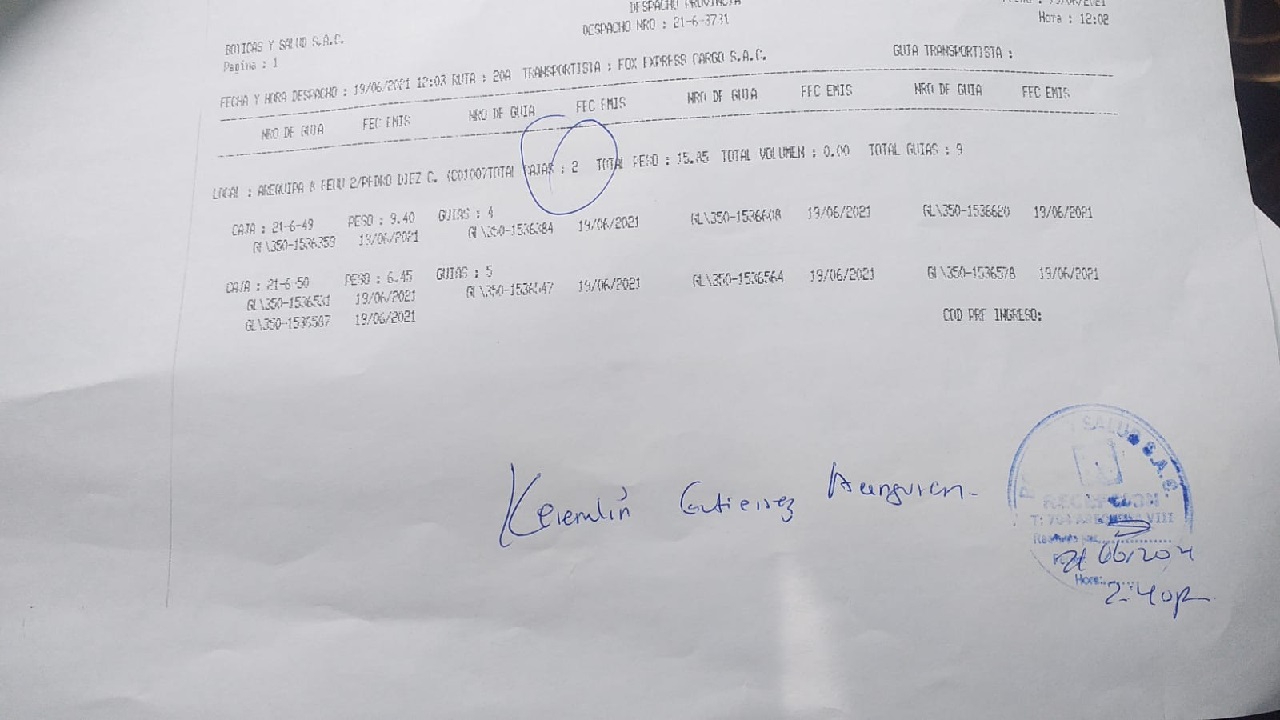 DESPACHO PROVINCIA
DESPACHO NRO : 21-6-3731
Hora : 12:02
BOTICAS Y SALUD S.A.C.
Pagina : 1
FECHA Y HORA DESPACHO : 19/06/2021 12:03 RUTA : 20A TRANSPORTISTA : FOX EXPRESS CARGO S.A.C. GUIA TRANSPORTISTA :
NRO DE GUIA FEC EMIS NRO DE GUIA FEC EMIS NRO DE GUIA FEC EMIS NRO DE GUIA FEC EMIS
LOCAL : AREQUIPA 8 2/PEDRO DIEZ C. TOTAL CAJAS : 2 TOTAL PESO : 15.85 TOTAL VOLUMEN : 0.00 TOTAL GUIAS : 9
CAJA : 21-6-49 PESO : 9.40 GUIAS : 4
19/06/2021 GL\350-1536384 19/06/2021 GL\350-1536608 19/06/2021 GL\350-1536620 19/06/2021
CAJA : 21-6-50 PESO : 6.45 GUIAS : 5
GL\350-1536531 19/06/2021 GL\350-1536547 19/06/2021 GL\350-1536564 19/06/2021 GL\350-1536578 19/06/2021
GL\350-1536587 19/06/2021
COD PRE INGRESO:
Gutierrez
SALUD S.A.C.
RECEPCION
Hora:
2:40p